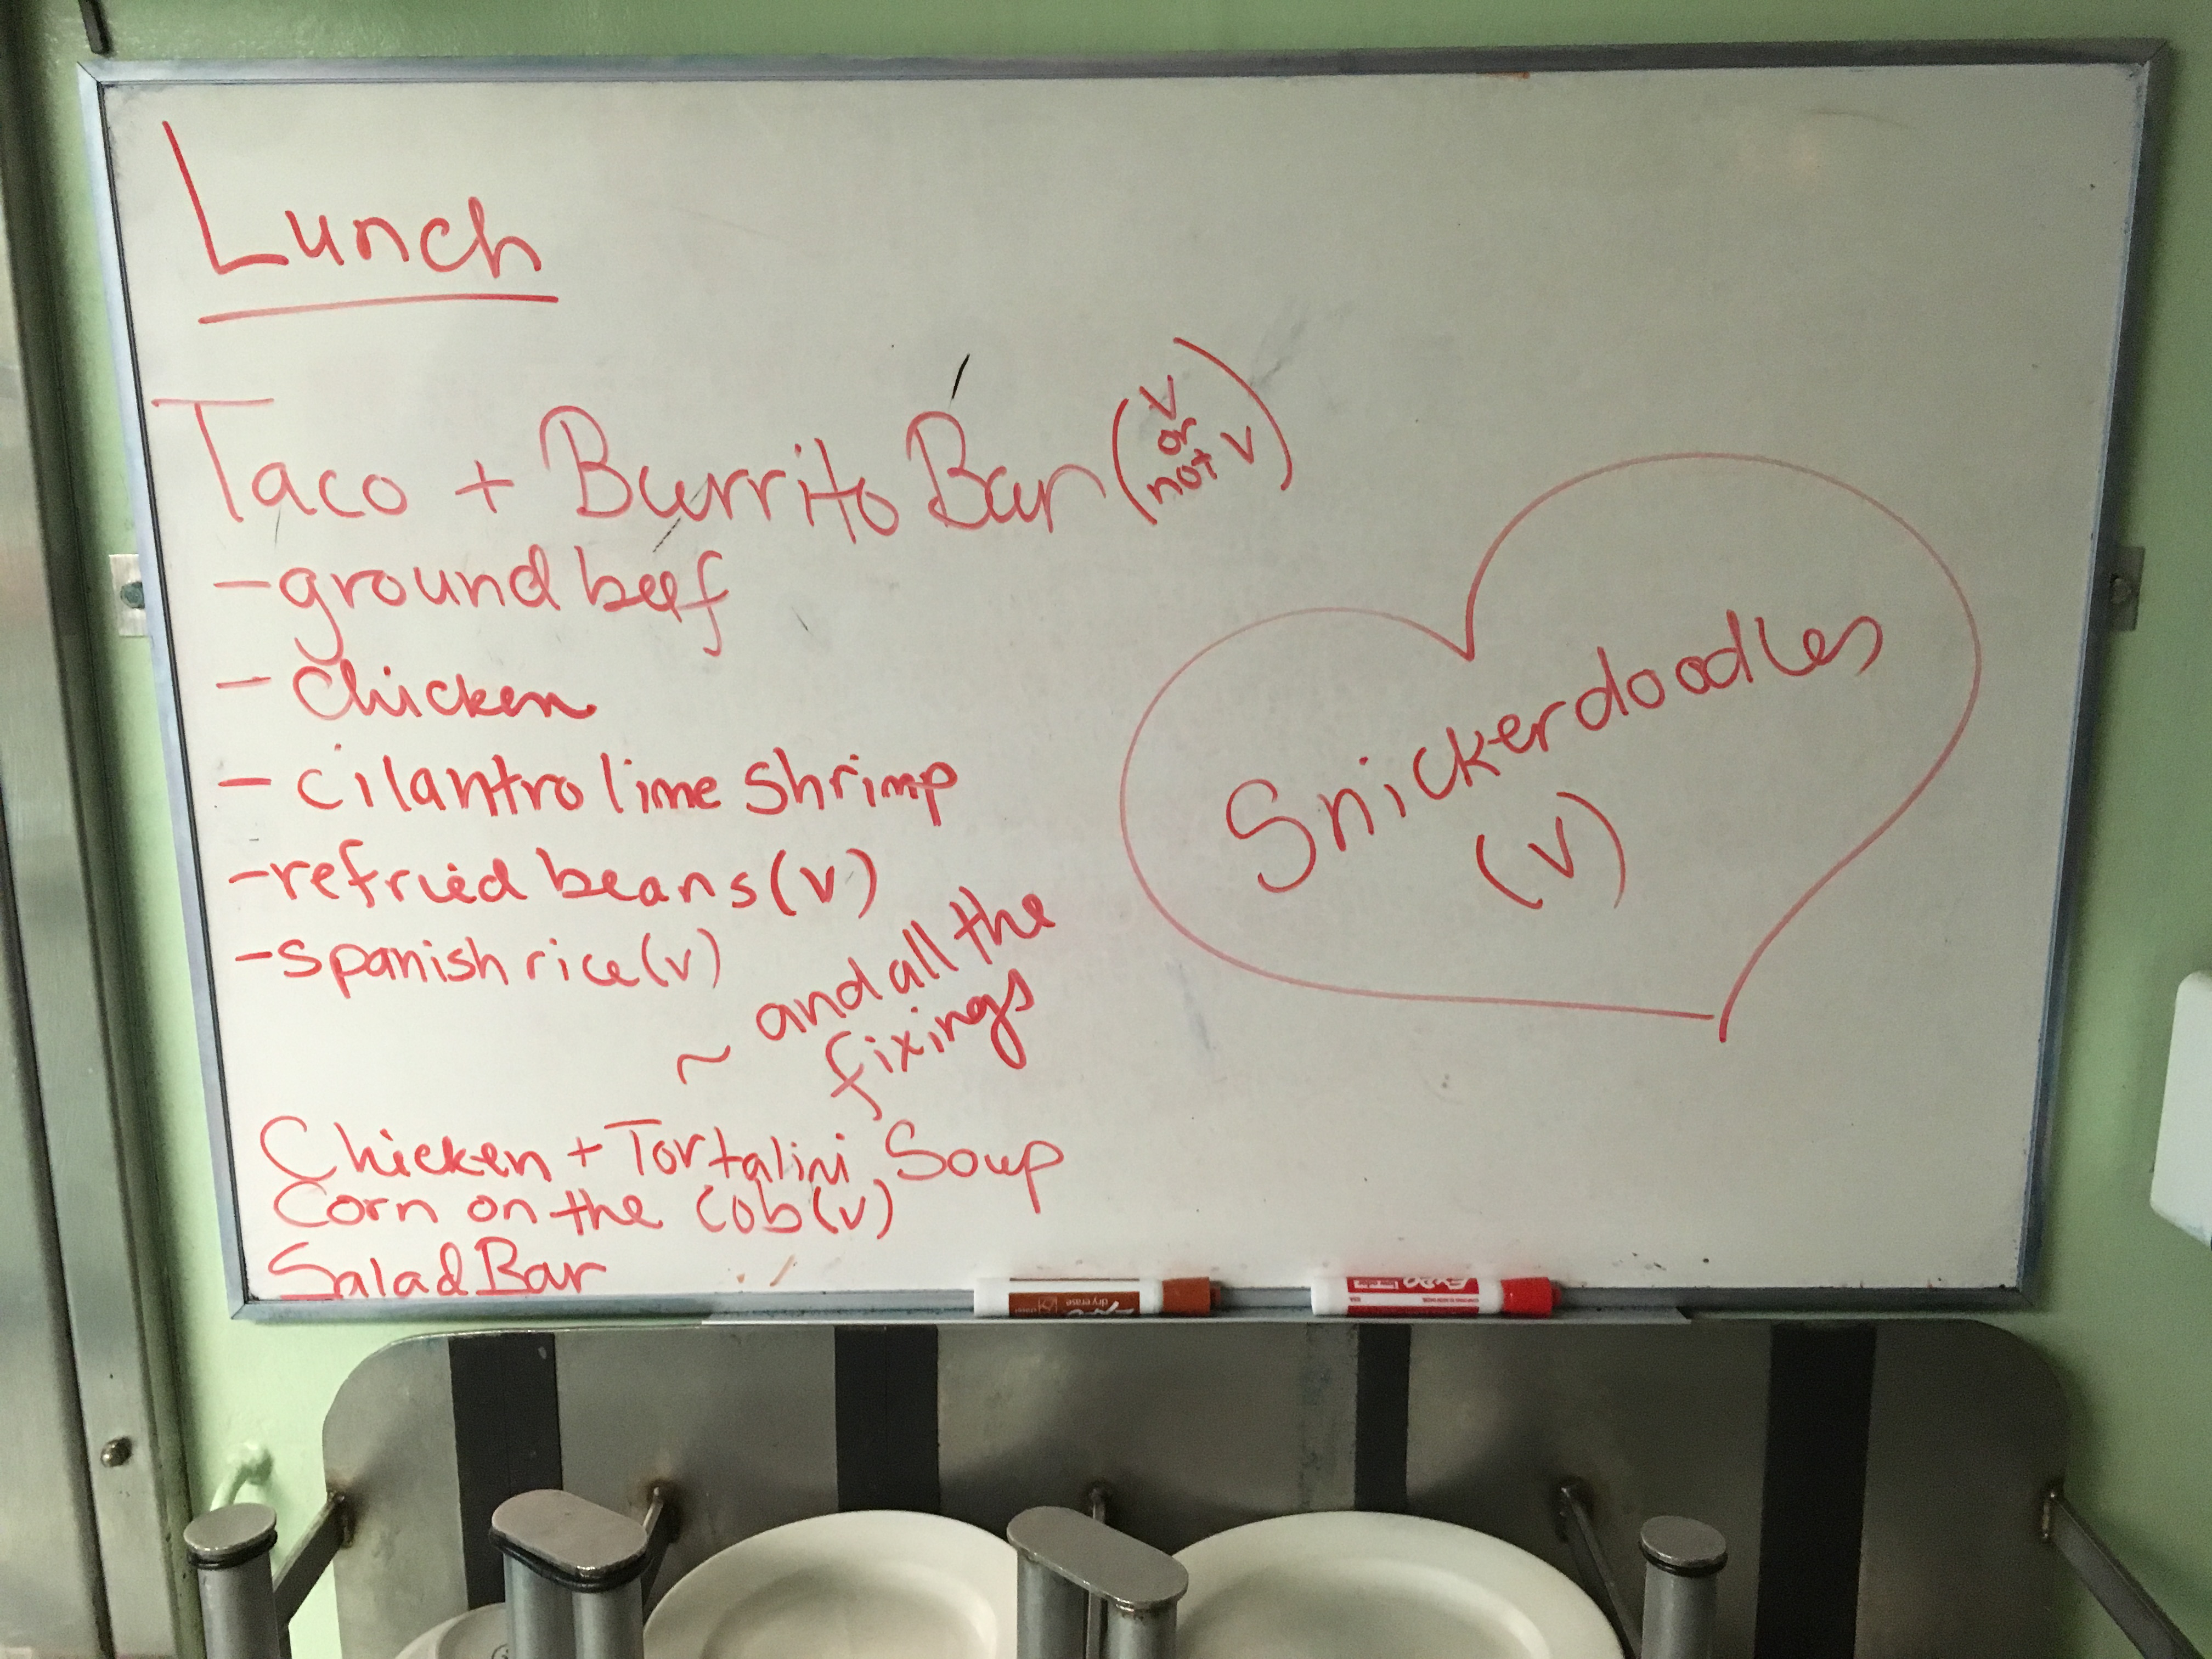 Lunch
Taco + Burrito Bar (V
or
not V)
- ground beef
- chicken
- cilantro lime shrimp
- refried beans (v)
- spanish rice (v)
~ and all the
fixings
Chicken + Tortalini Soup
Corn on the Cob (v)
Salad Bar
Snickerdoodles
(V)
dry erase
EXPO